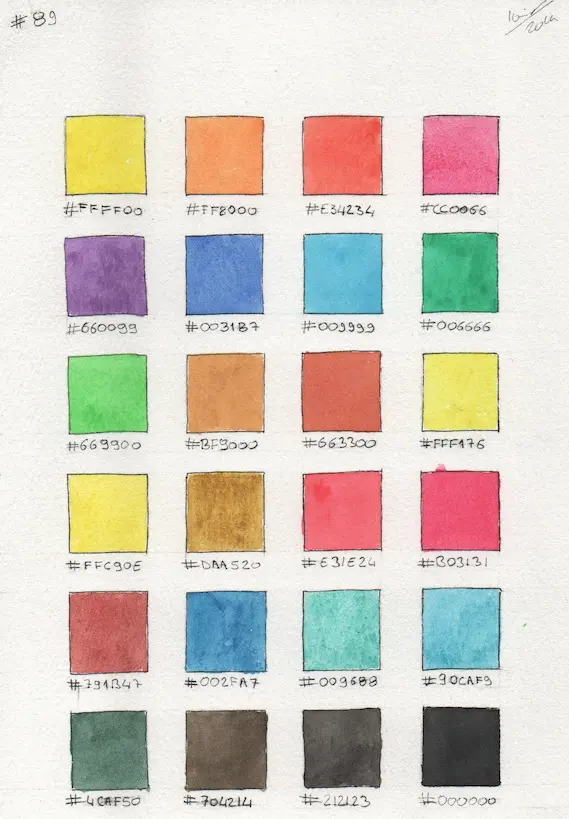 #89
2024
#FFFF00 #FF8000 #E34234 #CC0066
#660099 #0031B7 #009999 #006666
#669900 #BF9000 #663300 #FFF176
#FFC90E #DAA520 #E31E24 #B03131
#791B47 #002FA7 #009688 #90CAF9
#4CAF50 #704214 #212123 #000000